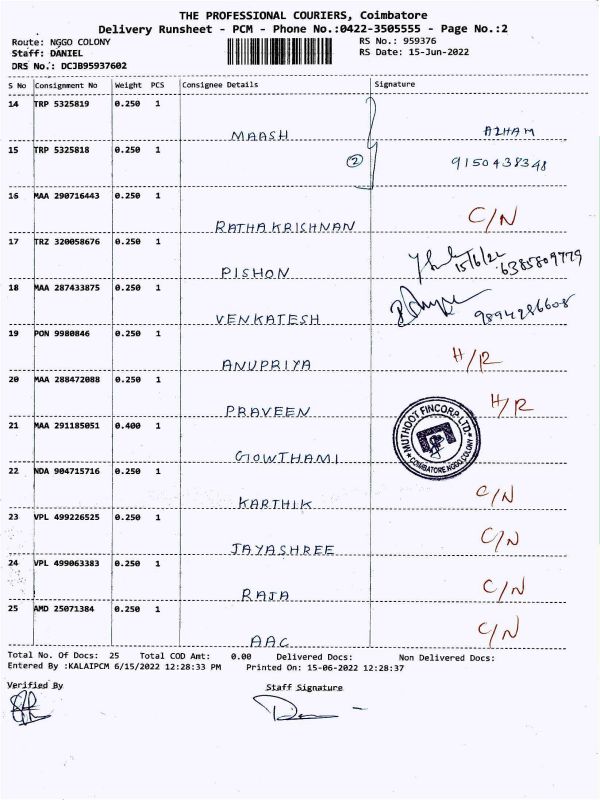 THE PROFESSIONAL COURIERS, Coimbatore
Delivery Runsheet - PCM - Phone No.:0422-3505555 - Page No.:2
Route: NGGO COLONY RS No.: 959376
Staff: DANIEL RS Date: 15-Jun-2022
DRS No.: DCJB95937602
S No Consignment No Weight PCS Consignee Details Signature
14 TRP 5325819 0.250 1
MAASH AZHAM
15 TRP 5325818 0.250 1
2 9150438348
16 MAA 290716443 0.250 1
RATHAKRISHNAN C/N
17 TRZ 320058676 0.250 1
PISHON 15/6/22 6385809779
18 MAA 287433875 0.250 1
VENKATESH 9894286608
19 PON 9980846 0.250 1
ANUPRIYA H/R
20 MAA 288472088 0.250 1
PRAVEEN H/R
21 MAA 291185051 0.400 1
GOWTHAMI
MUTHOOT FINCORP LTD.
COIMBATORE NGGO COLONY
22 NDA 904715716 0.250 1
KARTHIK C/N
23 VPL 499226525 0.250 1
JAYASHREE C/N
24 VPL 499063383 0.250 1
RAJA C/N
25 AMD 25071384 0.250 1
AAC C/N
Total No. Of Docs: 25 Total COD Amt: 0.00 Delivered Docs: Non Delivered Docs:
Entered By :KALAIPCM 6/15/2022 12:28:33 PM Printed On: 15-06-2022 12:28:37
Verified By Staff Signature